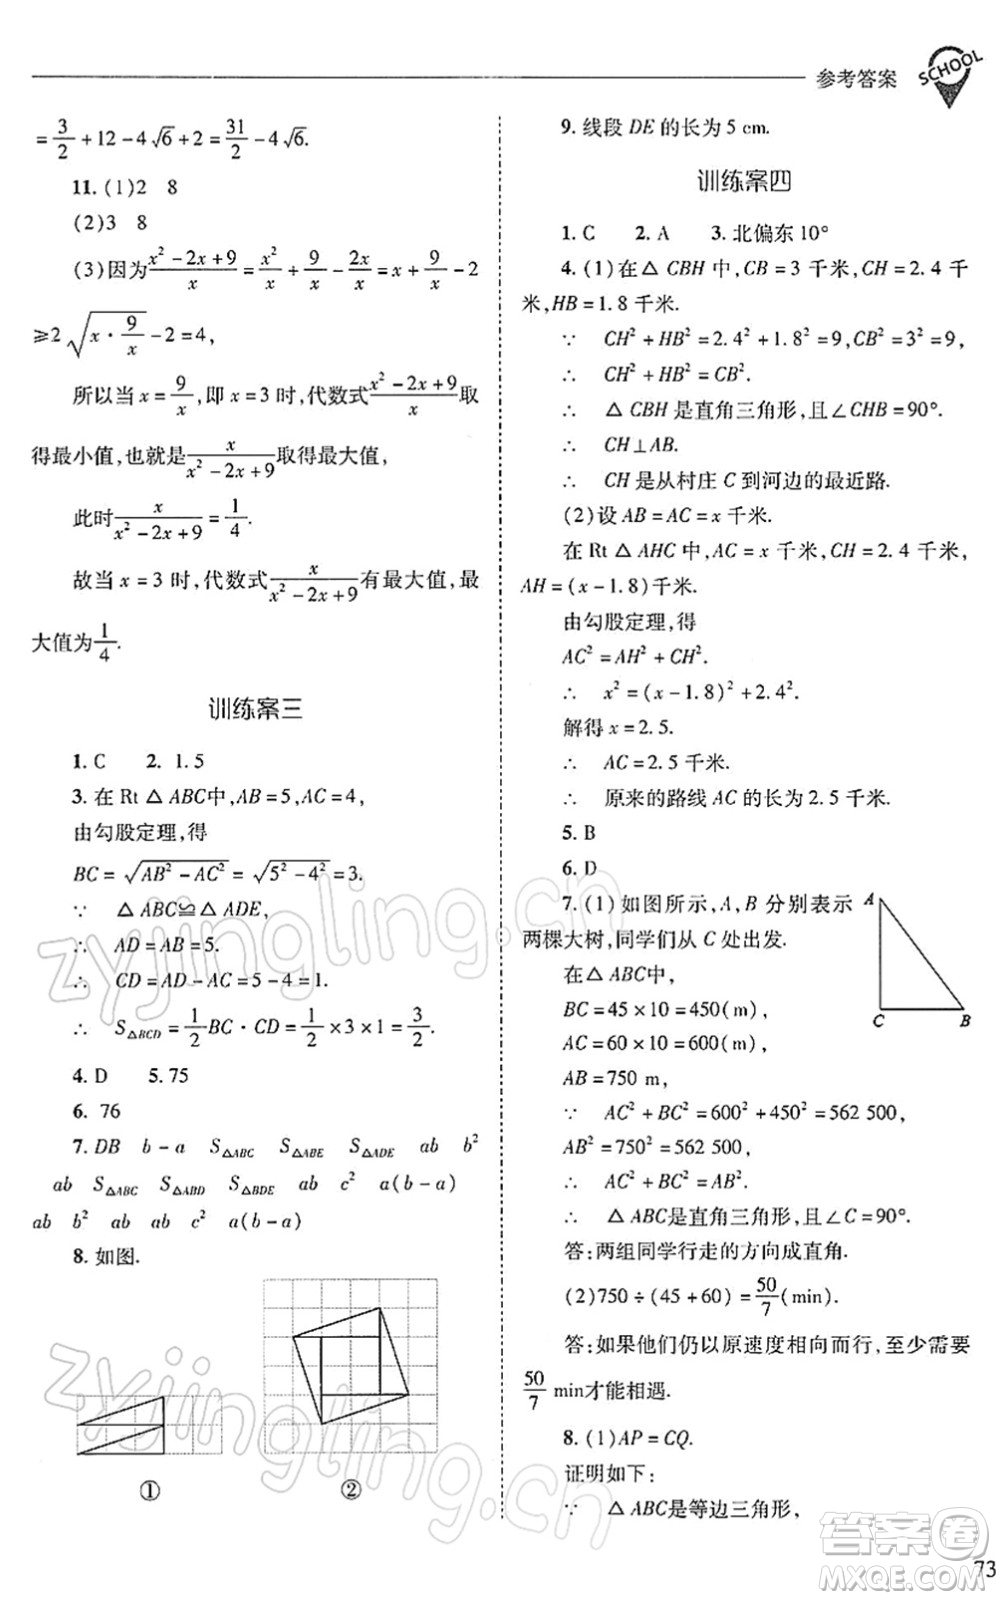 参考答案
SCHOOL
= 3/2 + 12 - 4√6 + 2 = 31/2 - 4√6.
11. (1)2 8
(2)3 8
(3)因为 (x² - 2x + 9)/x = x²/x + 9/x - 2x/x = x + 9/x - 2
≥2√(x · 9/x) - 2 = 4,
所以当 x = 9/x, 即 x = 3 时, 代数式 (x² - 2x + 9)/x 取
得最小值, 也就是 x/(x² - 2x + 9) 取得最大值,
此时 x/(x² - 2x + 9) = 1/4.
故当 x = 3 时, 代数式 x/(x² - 2x + 9) 有最大值, 最
大值为 1/4.
训练案三
1. C 2. 1.5
3. 在 Rt △ABC中, AB = 5, AC = 4,
由勾股定理, 得
BC = √(AB² - AC²) = √(5² - 4²) = 3.
∵ △ABC≌△ADE,
∴ AD = AB = 5.
∴ CD = AD - AC = 5 - 4 = 1.
∴ S△BCD = 1/2 BC · CD = 1/2 × 3 × 1 = 3/2.
4. D 5. 75
6. 76
7. DB b - a S△ABC S△ABE S△ADE ab b²
ab S△ABC S△ABD S△BDE ab c² a(b - a)
ab b² ab ab c² a(b - a)
8. 如图.
① ②
9. 线段 DE 的长为 5 cm.
训练案四
1. C 2. A 3. 北偏东 10°
4. (1)在 △CBH 中, CB = 3 千米, CH = 2.4 千
米, HB = 1.8 千米.
∵ CH² + HB² = 2.4² + 1.8² = 9, CB² = 3² = 9,
∴ CH² + HB² = CB².
∴ △CBH 是直角三角形, 且∠CHB = 90°.
∴ CH⊥AB.
∴ CH 是从村庄 C 到河边的最近路.
(2)设 AB = AC = x 千米.
在 Rt △AHC 中, AC = x 千米, CH = 2.4 千米,
AH = (x - 1.8)千米.
由勾股定理, 得
AC² = AH² + CH².
∴ x² = (x - 1.8)² + 2.4².
解得 x = 2.5.
∴ AC = 2.5 千米.
∴ 原来的路线 AC 的长为 2.5 千米.
5. B
6. D
7. (1)如图所示, A, B 分别表示
两棵大树, 同学们从 C 处出发.
在△ABC中,
BC = 45 × 10 = 450(m),
AC = 60 × 10 = 600(m),
AB = 750 m,
A
C B
∵ AC² + BC² = 600² + 450² = 562 500,
AB² = 750² = 562 500,
∴ AC² + BC² = AB².
∴ △ABC是直角三角形, 且∠C = 90°.
答: 两组同学行走的方向成直角.
(2)750 ÷ (45 + 60) = 50/7 (min).
答: 如果他们仍以原速度相向而行, 至少需要
50/7 min才能相遇.
8. (1)AP = CQ.
证明如下:
∵ △ABC是等边三角形,
73
zyjingling.cn
zyjingling.cn
答案卷
MXQE.COM